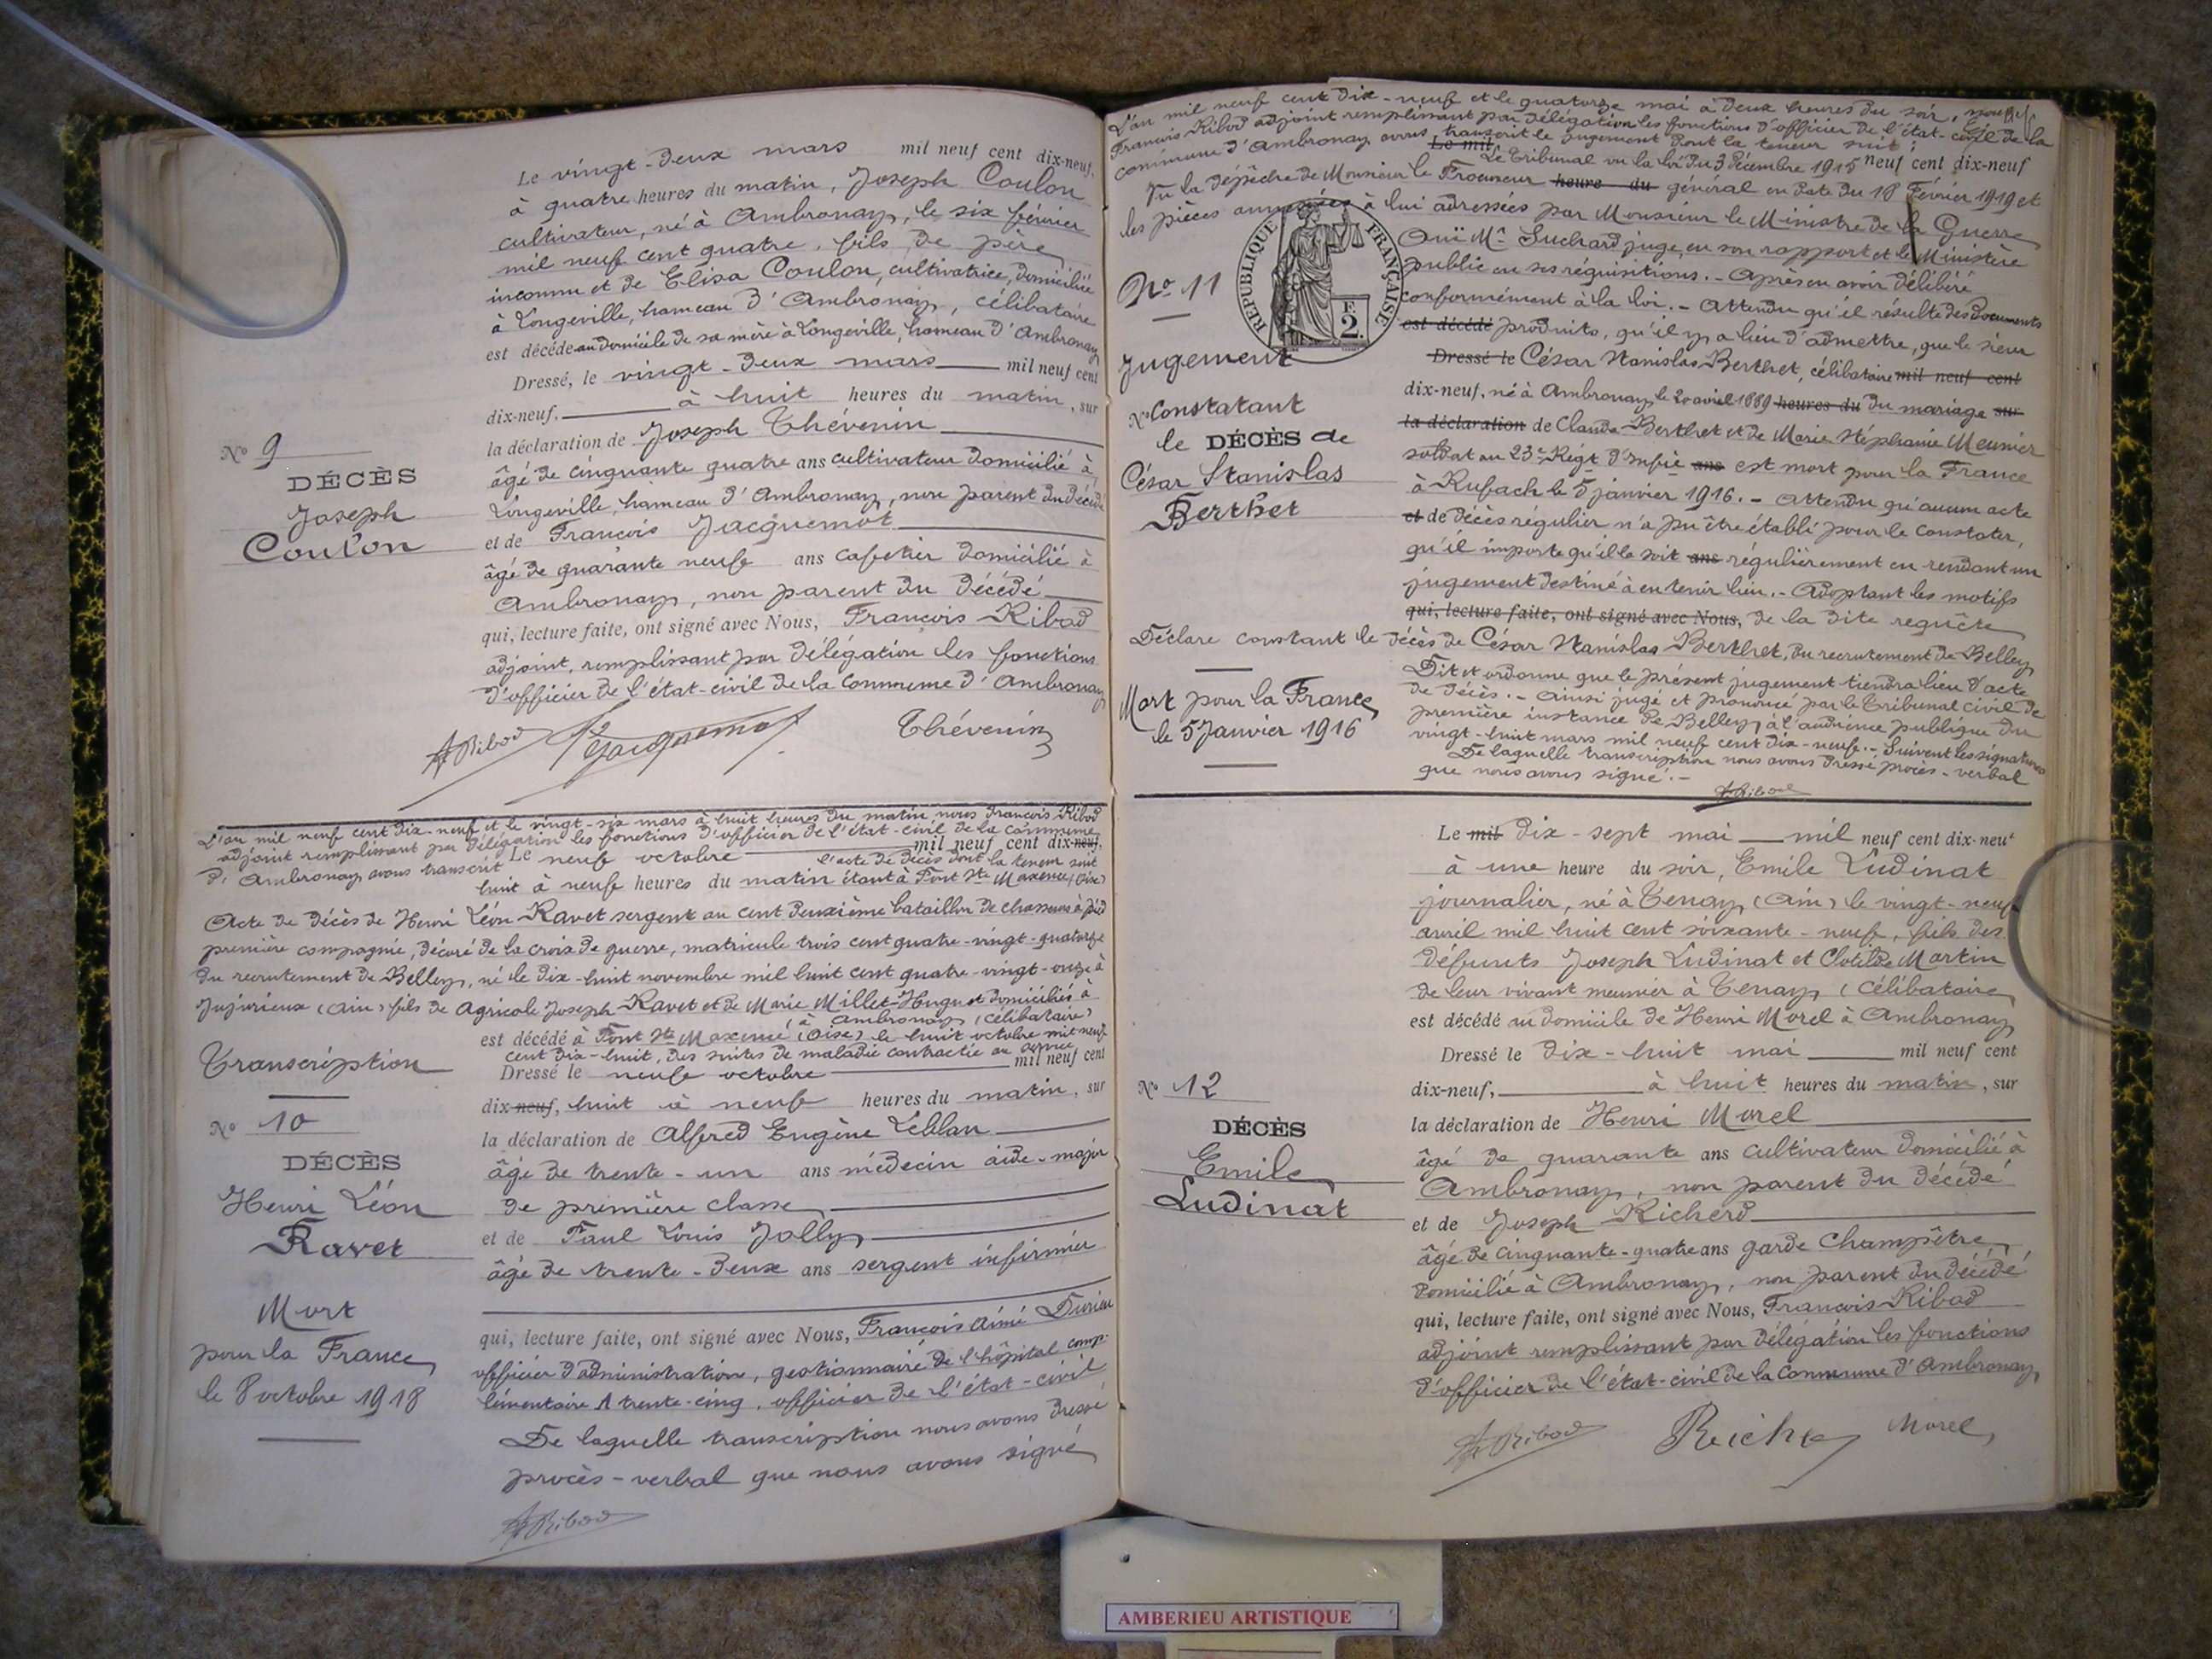 Le vingt-deux mars mil neuf cent dix-neuf,
à quatre heures du matin, Joseph Coulon
cultivateur, né à Ambronay, le six février
mil neuf cent quatre, fils de père
inconnu et de Elisa Coulon, cultivatrice, domiciliée
à Longeville, hameau d'Ambronay, célibataire
est décédé au domicile de sa mère à Longeville, hameau d'Ambronay
Dressé, le vingt-deux mars mil neuf cent
dix-neuf, à huit heures du matin, sur
la déclaration de Joseph Thévenin
âgé de cinquante quatre ans cultivateur domicilié à
Longeville, hameau d'Ambronay, non parent du décédé
et de François Jacquemot
âgé de quarante neuf ans cafetier domicilié à
Ambronay, non parent du décédé
qui, lecture faite, ont signé avec Nous, François Ribod
adjoint, remplissant par délégation les fonctions
d'officier de l'état-civil de la Commune d'Ambronay
Nº 9
DÉCÈS
Joseph
Coulon
F Ribod Jacquemot Thévenin
L'an mil neuf cent dix-neuf et le vingt-six mars à huit heures du matin nous François Ribod
adjoint remplissant par délégation les fonctions d'officier de l'état-civil de la commune
d'Ambronay avons transcrit l'acte de décès dont la teneur suit
Le neuf octobre mil neuf cent dix-neuf,
huit à neuf heures du matin étant à Pont Ste Maxence (Oise)
Acte de décès de Henri Léon Ravet sergent au cent deuxième bataillon de chasseurs à pied
première compagnie, décoré de la croix de guerre, matricule trois cent quatre-vingt-quatorze
du recrutement de Belley, né le dix-huit novembre mil huit cent quatre-vingt-onze à
Jujurieux (Ain) fils de Agricole Joseph Ravet et de Marie Millet-Hugues domiciliés à
à Ambronay (célibataire)
est décédé à Pont Ste Maxence (Oise) le huit octobre mil neuf
cent dix-huit, des suites de maladie contractée au service
Dressé le neuf octobre mil neuf cent
dix-neuf, huit à neuf heures du matin, sur
la déclaration de Alfred Eugène Leblan
âgé de trente-un ans médecin aide-major
de première classe
et de Paul Louis Jolly
âgé de trente-deux ans sergent infirmier
qui, lecture faite, ont signé avec Nous, François Aimé Durieu
officier d'administration, gestionnaire de l'hôpital comp-
lémentaire A trente-cinq, officier de l'état-civil
De laquelle transcription nous avons dressé
procès-verbal que nous avons signé
F Ribod
Transcription
Nº 10
DÉCÈS
Henri Léon
Ravet
Mort
pour la France
le 8 octobre 1918
L'an mil neuf cent dix-neuf et le quatorze mai à deux heures du soir, nous
François Ribod adjoint remplissant par délégation les fonctions d'officier de l'état-civil de la
commune d'Ambronay avons transcrit le jugement dont la teneur suit :
Le mil Le Tribunal vu la loi du 3 décembre 1915 neuf cent dix-neuf
Vu la dépêche de Monsieur le Procureur heure du général en date du 18 Février 1919 et
les pièces annexées à lui adressées par Monsieur le Ministre de la Guerre
Ouï Mr Suchard juge, en son rapport et le Ministère
public en ses réquisitions. - Après en avoir délibéré
conformément à la loi. - Attendu qu'il résulte des documents
est décédé produits, qu'il y a lieu d'admettre, que le sieur
Dressé le César Stanislas Berthet, célibataire mil neuf cent
dix-neuf, né à Ambronay le 20 avril 1889 heures du du mariage sur
la déclaration de Claude Berthet et de Marie Stéphanie Meunier
soldat au 23e Régt d'Infie ans est mort pour la France
à Rufach le 5 janvier 1916. - Attendu qu'aucun acte
et de décès régulier n'a pu être établi pour le constater,
qu'il importe qu'il le soit ans régulièrement en rendant un
jugement destiné à en tenir lieu. - Adoptant les motifs
qui, lecture faite, ont signé avec Nous, de la dite requête
Déclare constant le décès de César Stanislas Berthet, du recrutement de Belley
Dit et ordonne que le présent jugement tiendra lieu d'acte
de décès. - Ainsi jugé et prononcé par le Tribunal civil de
première instance de Belley, à l'audience publique du
vingt-huit mars mil neuf cent dix-neuf. - Suivent les signatures
De laquelle transcription nous avons dressé procès-verbal
que nous avons signé. -
F Ribod
No 11
RÉPUBLIQUE FRANÇAISE
F.
2.
Jugement
Nº Constatant
le DÉCÈS de
César Stanislas
Berthet
Mort pour la France
le 5 Janvier 1916
Le mil dix-sept mai mil neuf cent dix-neuf
à une heure du soir, Emile Ludinat
journalier, né à Tenay (Ain) le vingt-neuf
avril mil huit cent soixante-neuf, fils des
défunts Joseph Ludinat et Clotilde Martin
de leur vivant meunier à Tenay (célibataire
est décédé au domicile de Henri Morel à Ambronay
Dressé le dix-huit mai mil neuf cent
dix-neuf, à huit heures du matin, sur
la déclaration de Henri Morel
âgé de quarante ans cultivateur domicilié à
Ambronay, non parent du décédé
et de Joseph Richerd
âgé de cinquante-quatre ans garde champêtre
domicilié à Ambronay, non parent du décédé
qui, lecture faite, ont signé avec Nous, François Ribod
adjoint remplissant par délégation les fonctions
d'officier de l'état-civil de la Commune d'Ambronay
F Ribod Morel
Nº 12
DÉCÈS
Emile
Ludinat
AMBERIEU ARTISTIQUE